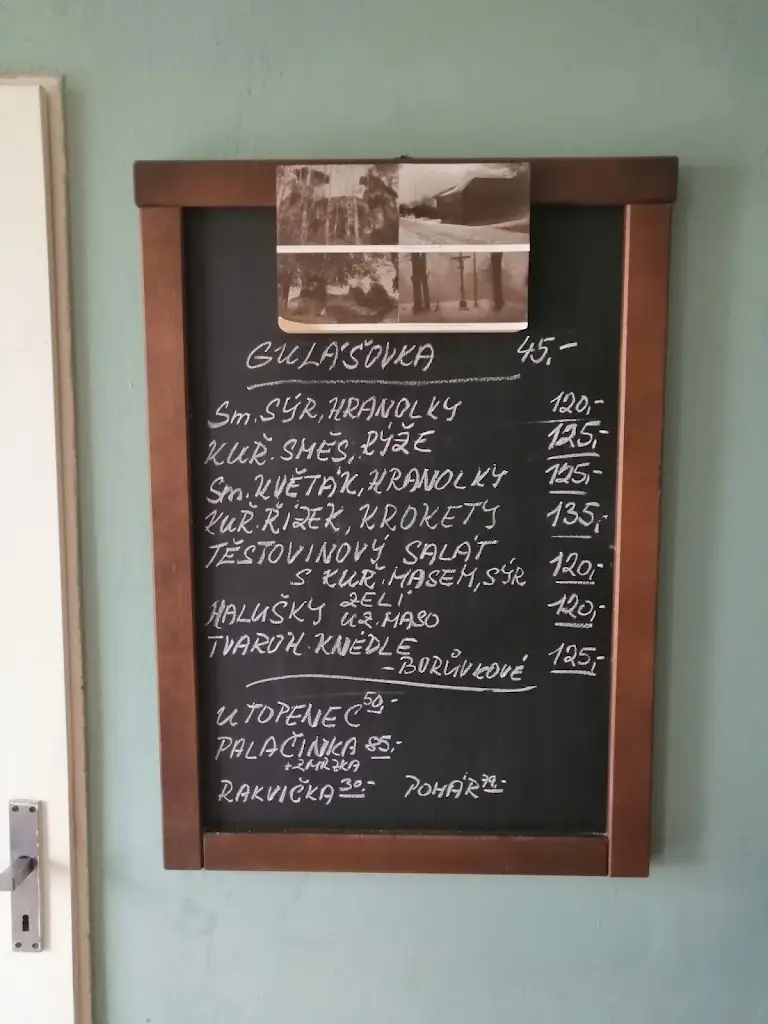 GULÁŠOVKA 45,-
Sm. SÝR, HRANOLKY 120,-
KUŘ. SMĚS, RÝŽE 125,-
Sm. KVĚTÁK, HRANOLKY 125,-
KUŘ. ŘÍZEK, KROKETY 135,-
TĚSTOVINOVÝ SALÁT
S KUŘ. MASEM, SÝR 120,-
HALUŠKY ZELÍ 120,-
UZ. MASO
TVAROH. KNEDLE
- BORŮVKOVÉ 125,-
UTOPENEC 50,-
PALAČINKA 85,-
+ ZMRZKA
RAKVIČKA 30,- POHÁR 79,-